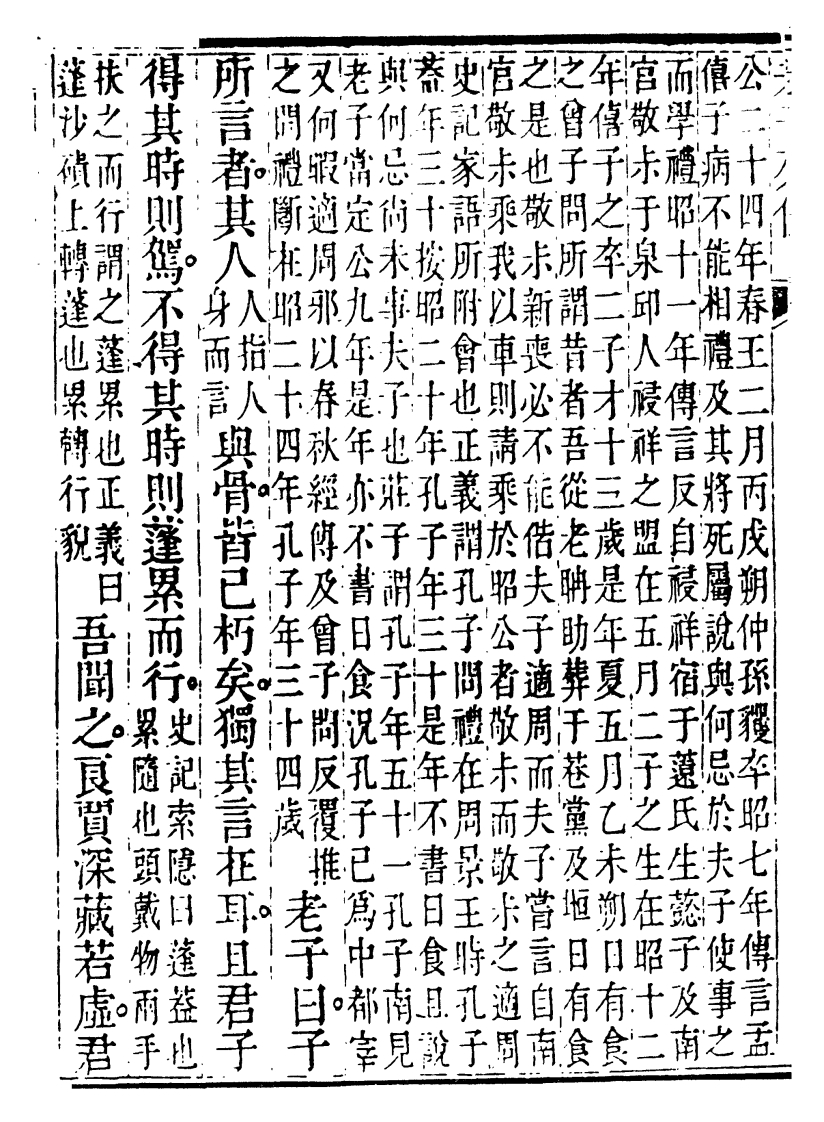 公二十四年春王二月丙戌朔仲孫貜卒昭七年傳言孟
僖子病不能相禮及其將死屬說與何忌於夫子使事之
而學禮昭十一年傳言反自祲祥宿于薳氏生懿子及南
宮敬尗于泉邱人祲祥之盟在五月二子之生在昭十二
年僖子之卒二子才十三歲是年夏五月乙未朔日有食
之曾子問所謂昔者吾從老聃助葬于巷黨及堩日有食
之是也敬尗新喪必不能偕夫子適周而夫子嘗言自南
宮敬尗乘我以車則請乘於昭公者敬尗而敬尗之適周
史記家語所附會也正義謂孔子問禮在周景王時孔子
蓋年三十按昭二十年孔子年三十是年不書日食且說
與何忌尚未事夫子也莊子謂孔子年五十一孔子南見
老子當定公九年是年亦不書日食況孔子已為中都宰
又何暇適周邪以春秋經傳及曾子問反覆推
之問禮斷在昭二十四年孔子年三十四歲
老子曰。子
所言者。其人
人指人
身而言
與骨。皆已朽矣。獨其言在耳。且君子
得其時則駕。不得其時則蓬累而行。
史記索隱曰蓬蓋也
累隨也頭戴物兩手
扶之而行謂之蓬累也正義曰
蓬沙磧上轉蓬也累轉行貌
吾聞之。良賈深藏若虛。君